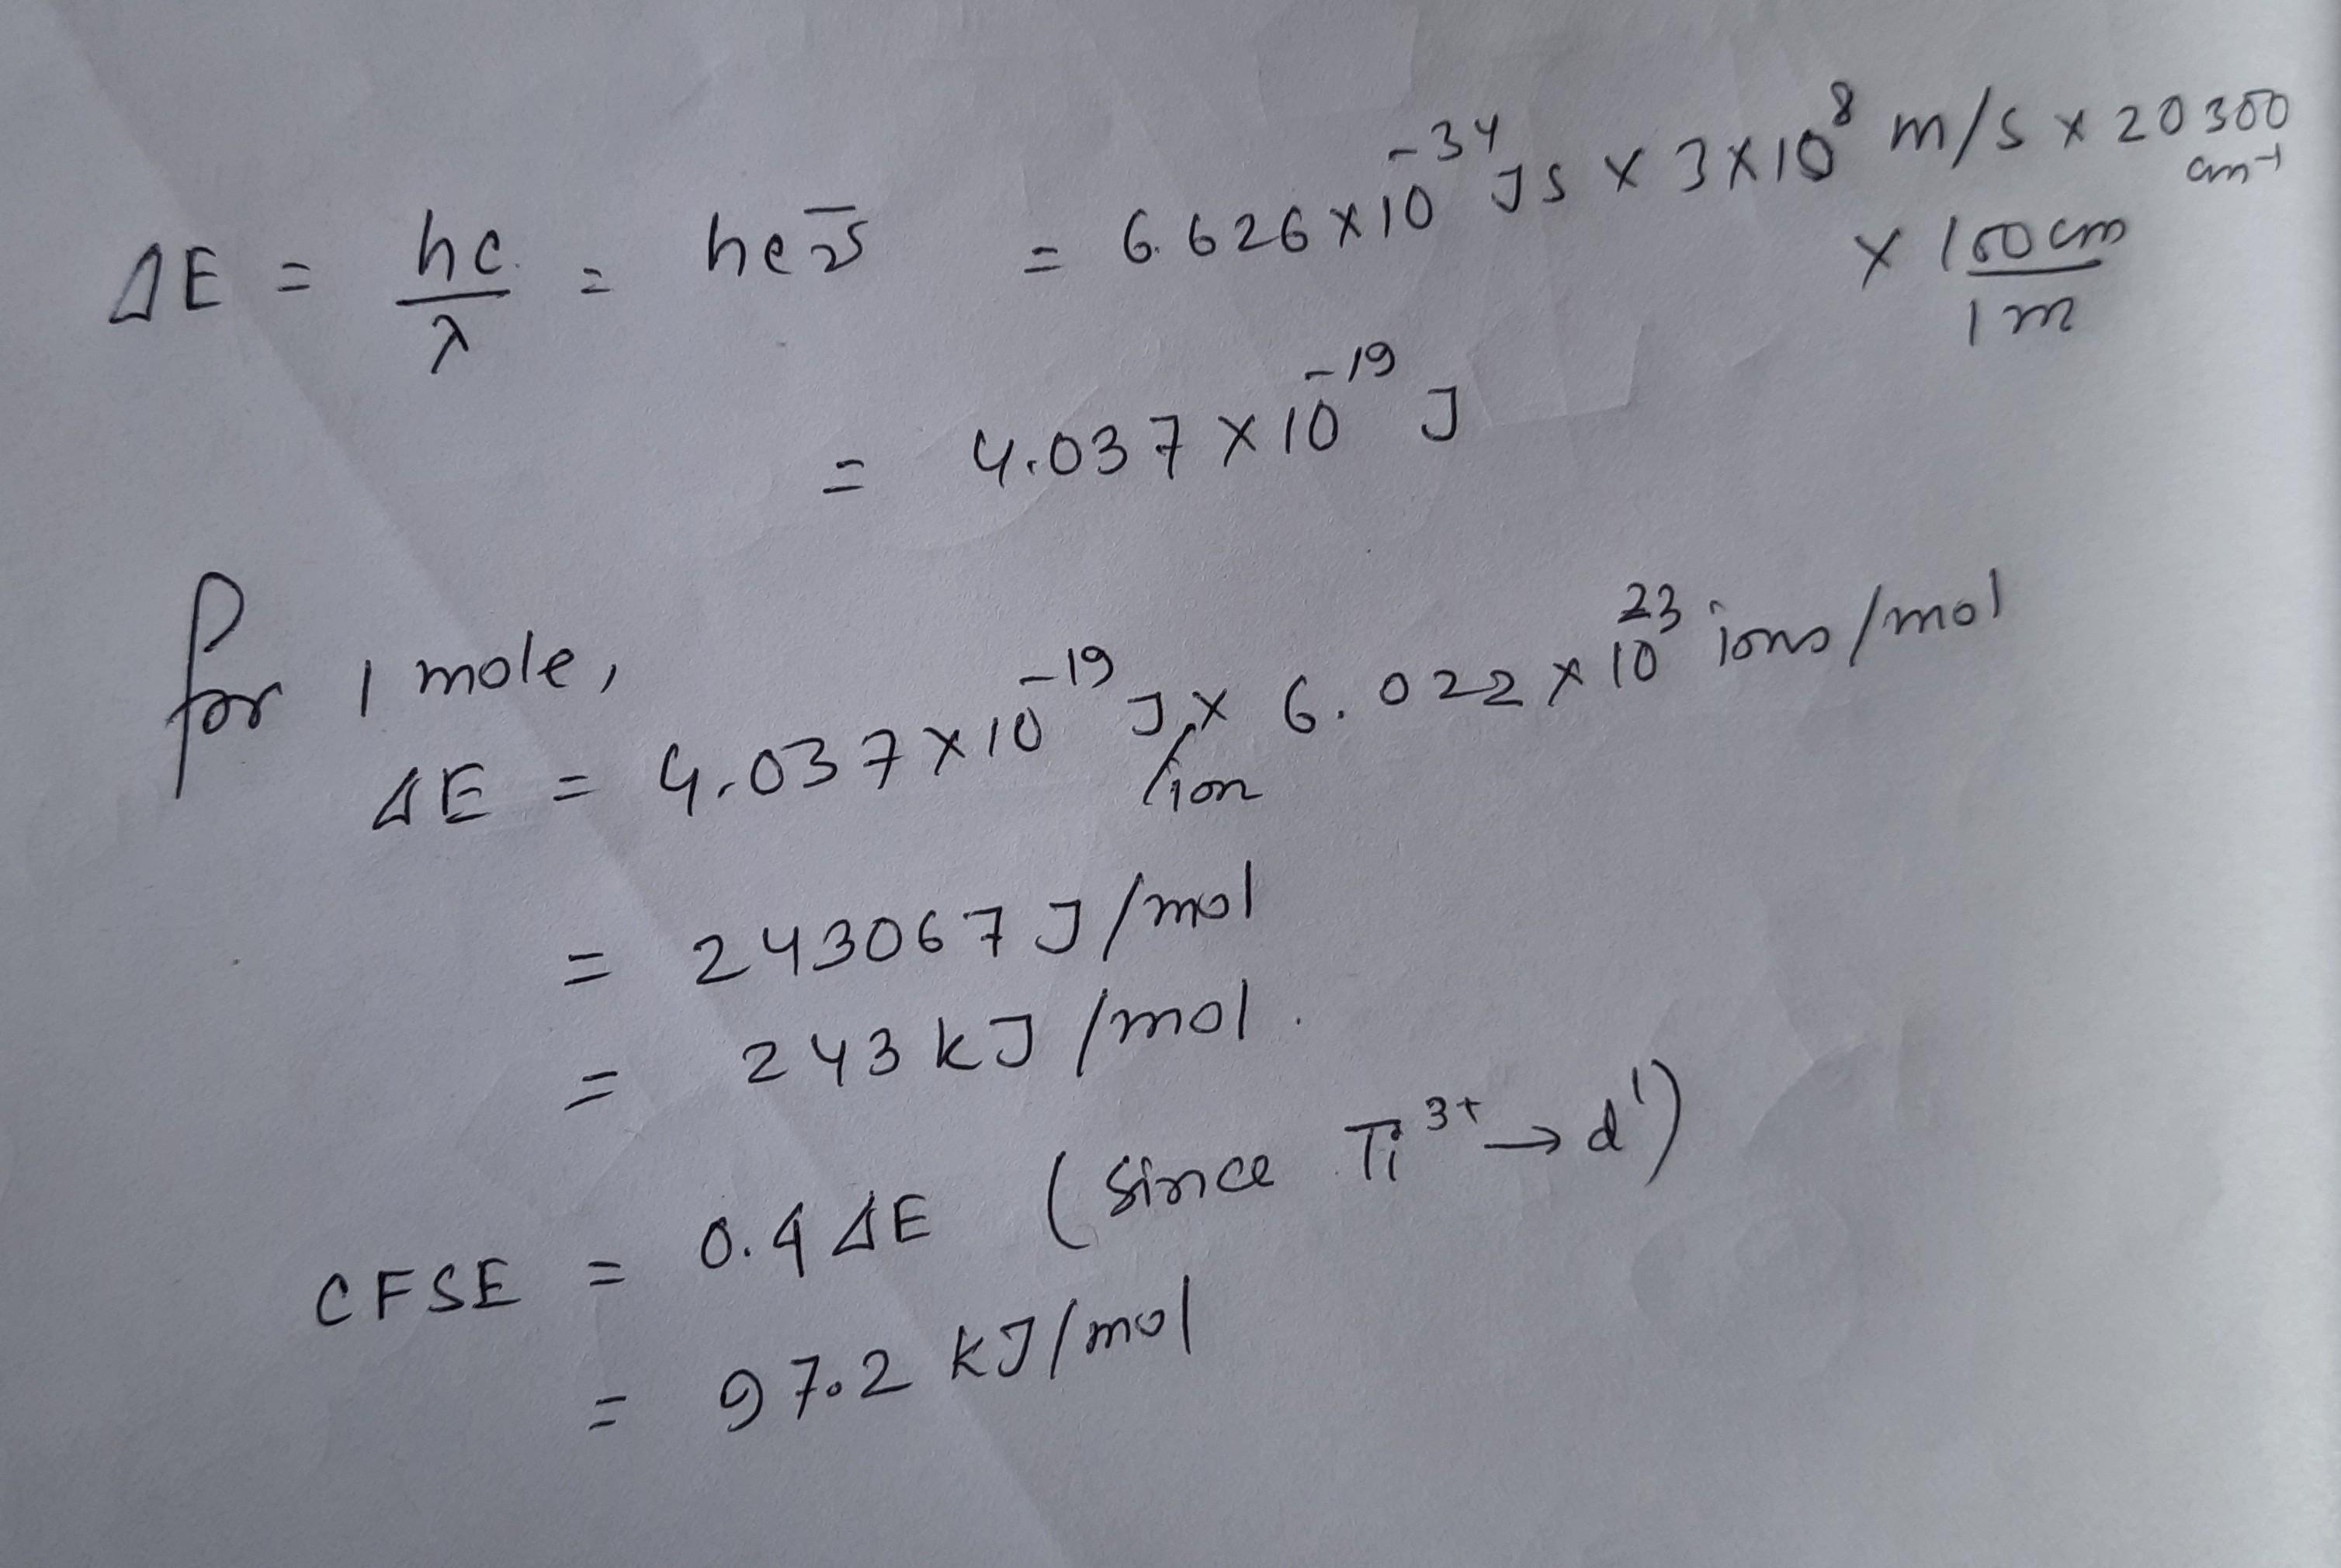 ΔE = hc/λ = hcν̅ = 6.626 × 10⁻³⁴ Js × 3×10⁸ m/s × 20300 cm⁻¹
× 100cm/1m
= 4.037 × 10⁻¹⁹ J
for 1 mole,
ΔE = 4.037 × 10⁻¹⁹ J/ion × 6.022 × 10²³ ions/mol
= 243067 J/mol
= 243 kJ/mol.
CFSE = 0.4 ΔE (Since Ti³⁺ → d¹)
= 97.2 kJ/mol